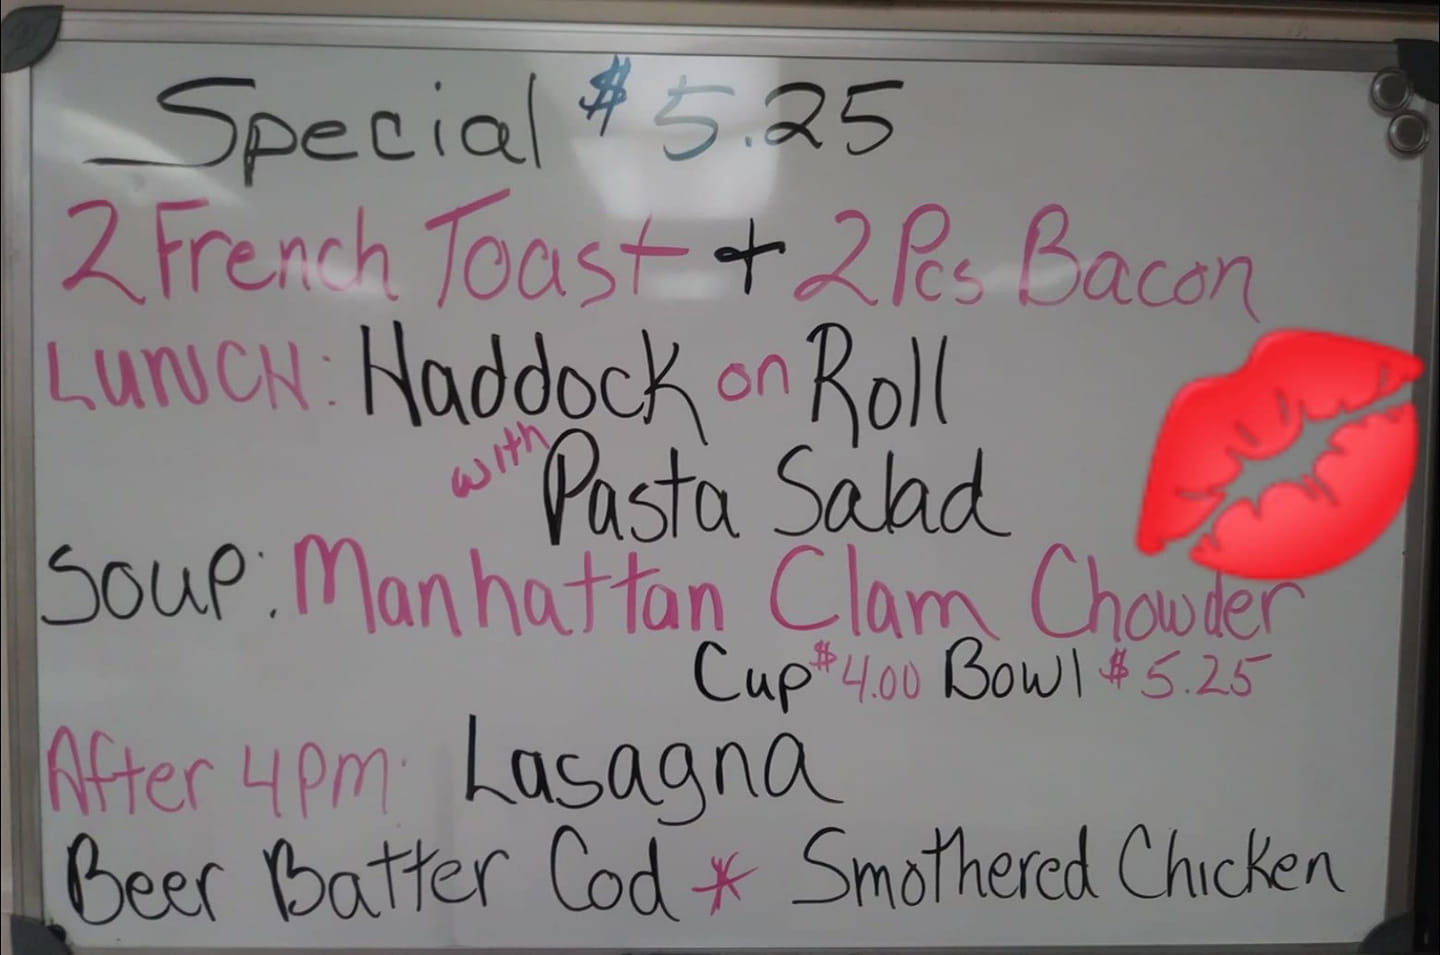 Special $5.25
2 French Toast + 2 Pcs Bacon
LUNCH: Haddock on Roll
with Pasta Salad
Soup: Manhattan Clam Chowder
Cup $4.00 Bowl $5.25
After 4pm: Lasagna
Beer Batter Cod * Smothered Chicken